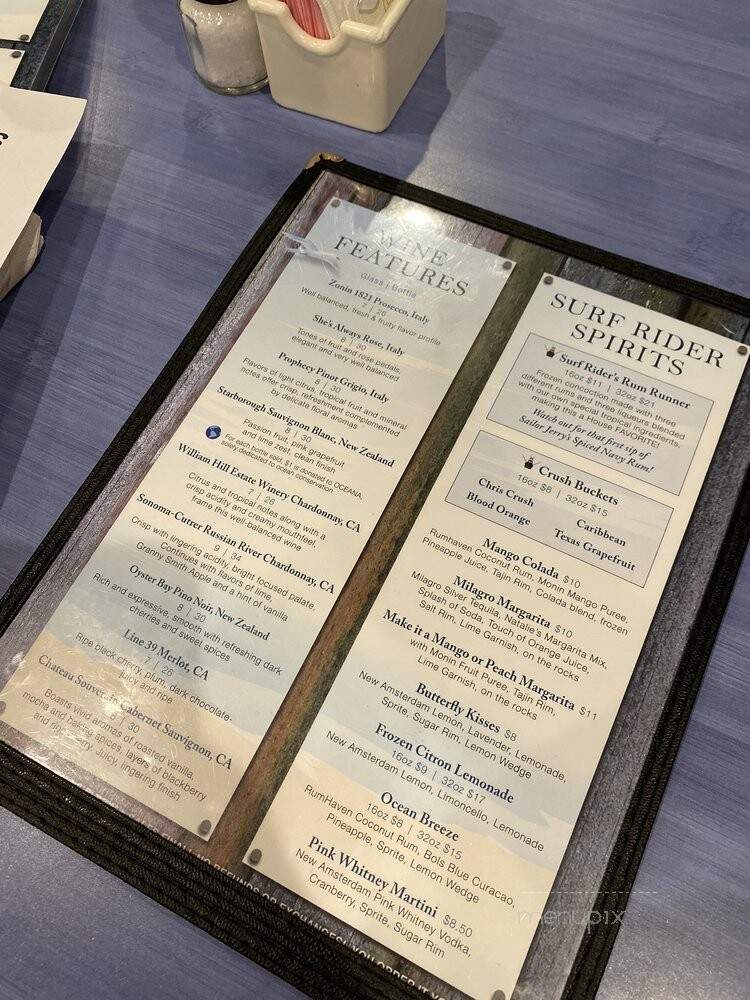 WINE
FEATURES
Glass | Bottle
Zonin 1821 Prosecco, Italy
7 | 26
Well balanced, fresh & fruity flavor profile
She's Always Rose, Italy
8 | 30
Tones of fruit and rose pedals,
elegant and very well balanced
Prophecy Pinot Grigio, Italy
8 | 30
Flavors of light citrus, tropical fruit and mineral
notes offer crisp, refreshment complemented
by delicate floral aromas
Starborough Sauvignon Blanc, New Zealand
8 | 30
Passion fruit, pink grapefruit
and lime zest, clean finish
For each bottle sold, $1 is donated to OCEANA,
solely dedicated to ocean conservation
William Hill Estate Winery Chardonnay, CA
7 | 26
Citrus and tropical notes along with a
crisp acidity and creamy mouthfeel,
frame this well-balanced wine
Sonoma-Cutrer Russian River Chardonnay, CA
9 | 34
Crisp with lingering acidity, bright focused palate.
Continues with flavors of lime,
Granny Smith Apple and a hint of vanilla
Oyster Bay Pino Noir, New Zealand
8 | 30
Rich and expressive, smooth with refreshing dark
cherries and sweet spices
Line 39 Merlot, CA
7 | 26
Ripe black cherry, plum, dark chocolate-
juicy and ripe
Chateau Souver Cabernet Sauvignon, CA
8 | 30
Boasts vivid aromas of roasted vanilla,
mocha and baking spices, layers of blackberry
and raspberry. Juicy, lingering finish
SURF RIDER
SPIRITS
Surf Rider's Rum Runner
16oz $11 | 32oz $21
Frozen concoction made with three
different rums and three liqueurs blended
with our own special tropical ingredients,
making this a House FAVORITE!
Watch out for that first sip of
Sailor Jerry's Spiced Navy Rum!
Crush Buckets
16oz $8 | 32oz $15
Chris Crush Caribbean
Blood Orange Texas Grapefruit
Mango Colada $10
Rumhaven Coconut Rum, Monin Mango Puree,
Pineapple Juice, Tajin Rim, Colada blend, frozen
Milagro Margarita $10
Milagro Silver Tequila, Natalie's Margarita Mix,
Splash of Soda, Touch of Orange Juice,
Salt Rim, Lime Garnish, on the rocks
Make it a Mango or Peach Margarita $11
with Monin Fruit Puree, Tajin Rim,
Lime Garnish, on the rocks
Butterfly Kisses $8
New Amsterdam Lemon, Lavender, Lemonade,
Sprite, Sugar Rim, Lemon Wedge
Frozen Citron Lemonade
16oz $9 | 32oz $17
New Amsterdam Lemon, Limoncello, Lemonade
Ocean Breeze
16oz $8 | 32oz $15
RumHaven Coconut Rum, Bols Blue Curacao,
Pineapple, Sprite, Lemon Wedge
Pink Whitney Martini $8.50
New Amsterdam Pink Whitney Vodka,
Cranberry, Sprite, Sugar Rim
OR EXCHANGES! YOU ORDER IT
menupix